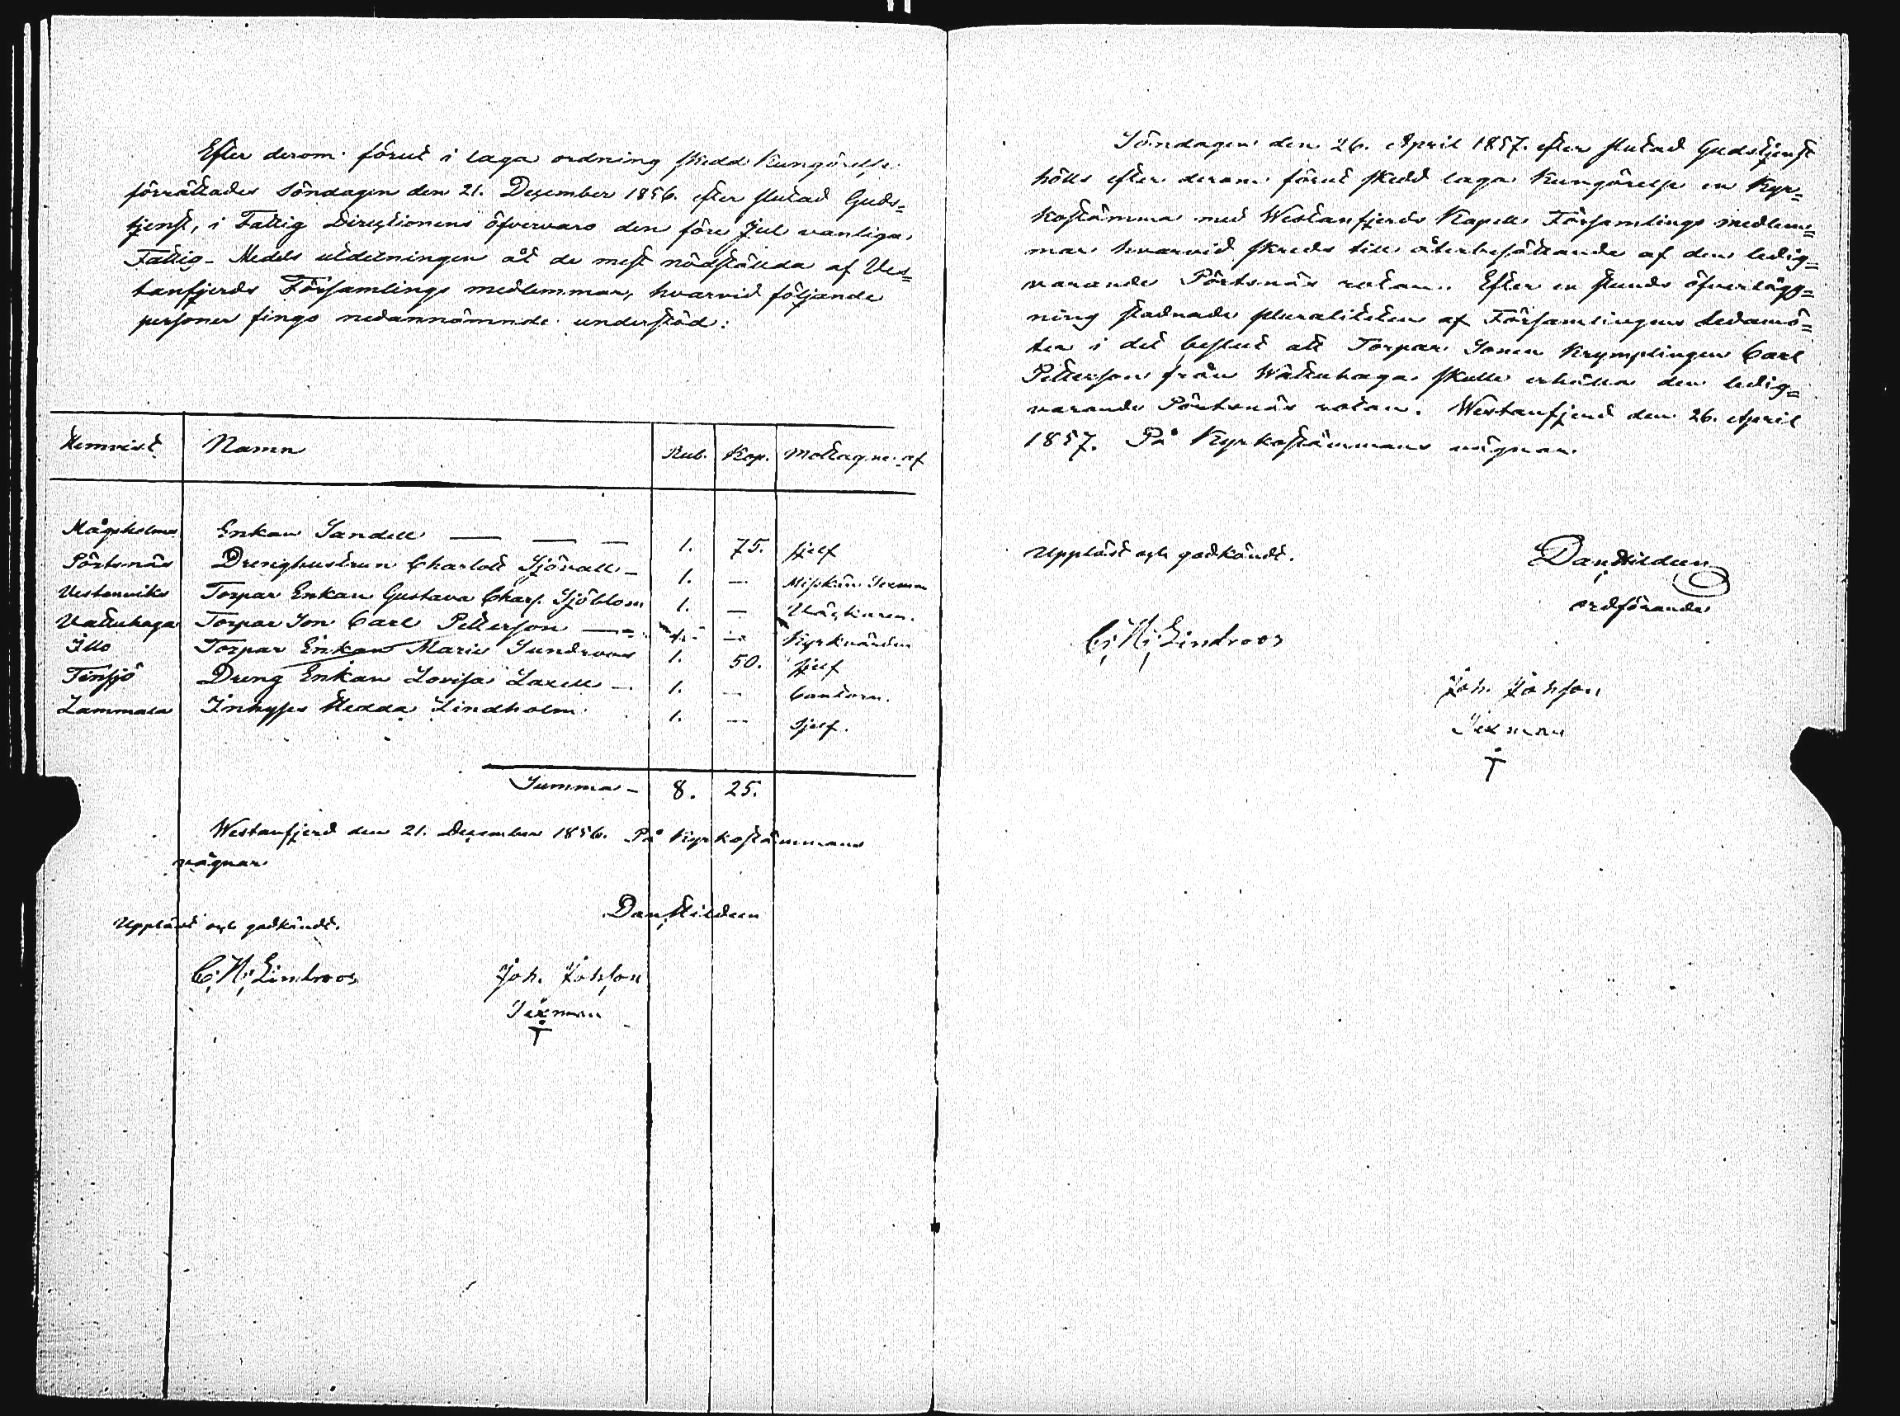 Efter derom förut i laga ordning skedd Kungörelse
förrättades Söndagen den 21. December 1856. efter slutad Guds=
tjenst, i Fattig Direktionens öfvervaro den före Jul vanliga
Fattig-Medels utdelningen åt de mest nödställda af Ves=
tanfjerds Församlings medlemmar, hvarvid följande
personer fingo nedannämnde understöd:
Hemvist Namn Rub. Kop. Mottag. af
Mågsholmen Enkan Sandell — — — 1. 75. sjelf
Pörtsnäs Drenghustrun Charlott Sjövall — 1. — Sexman
Vestanviks Torpar Enkan Gustava Charl. Sjöblom 1. —
Vattuhaga Torpar Son Carl Petterson — — Kyrkvärden
Illo Torpar Enkan Maria Sundroos 1. 50. sjelf
Tensjö Dreng Enkan Lovisa Laxell — 1. — Cantorn.
Lammala Inhyses Hedda Lindholm 1. — Sjelf.
Summa — 8. 25.
Westanfjerd den 21. December 1856. På Kyrkostämmans
vägnar
Dan Hildeen
Uppläst och godkändt.
C. N. Lindroos Joh. Johsson
Sexman
Söndagen den 26. April 1857. efter slutad Gudstjenst
hölls efter derom förut skedd laga Kungörelse en Kyr=
kostämma med Westanfjerds Kapells Församlings medlem=
mar hvarvid skreds till återbesättande af den ledig=
varande Pörtsnäs rotan. Efter en stunds öfverlägg=
ning stadnade pluraliteten af Församlingens Ledamö=
ter i det beslut att Torpar Sonen Krymplingen Carl
Petterson från Wattuhaga skulle erhålla den ledig=
varande Pörtsnäs rotan. Westanfjerd den 26. April
1857. På Kyrkostämmans vägnar.
Uppläst och godkändt. Dan Hildeen
ordförande
C. N. Lindroos
Joh. Johsson
Sexman